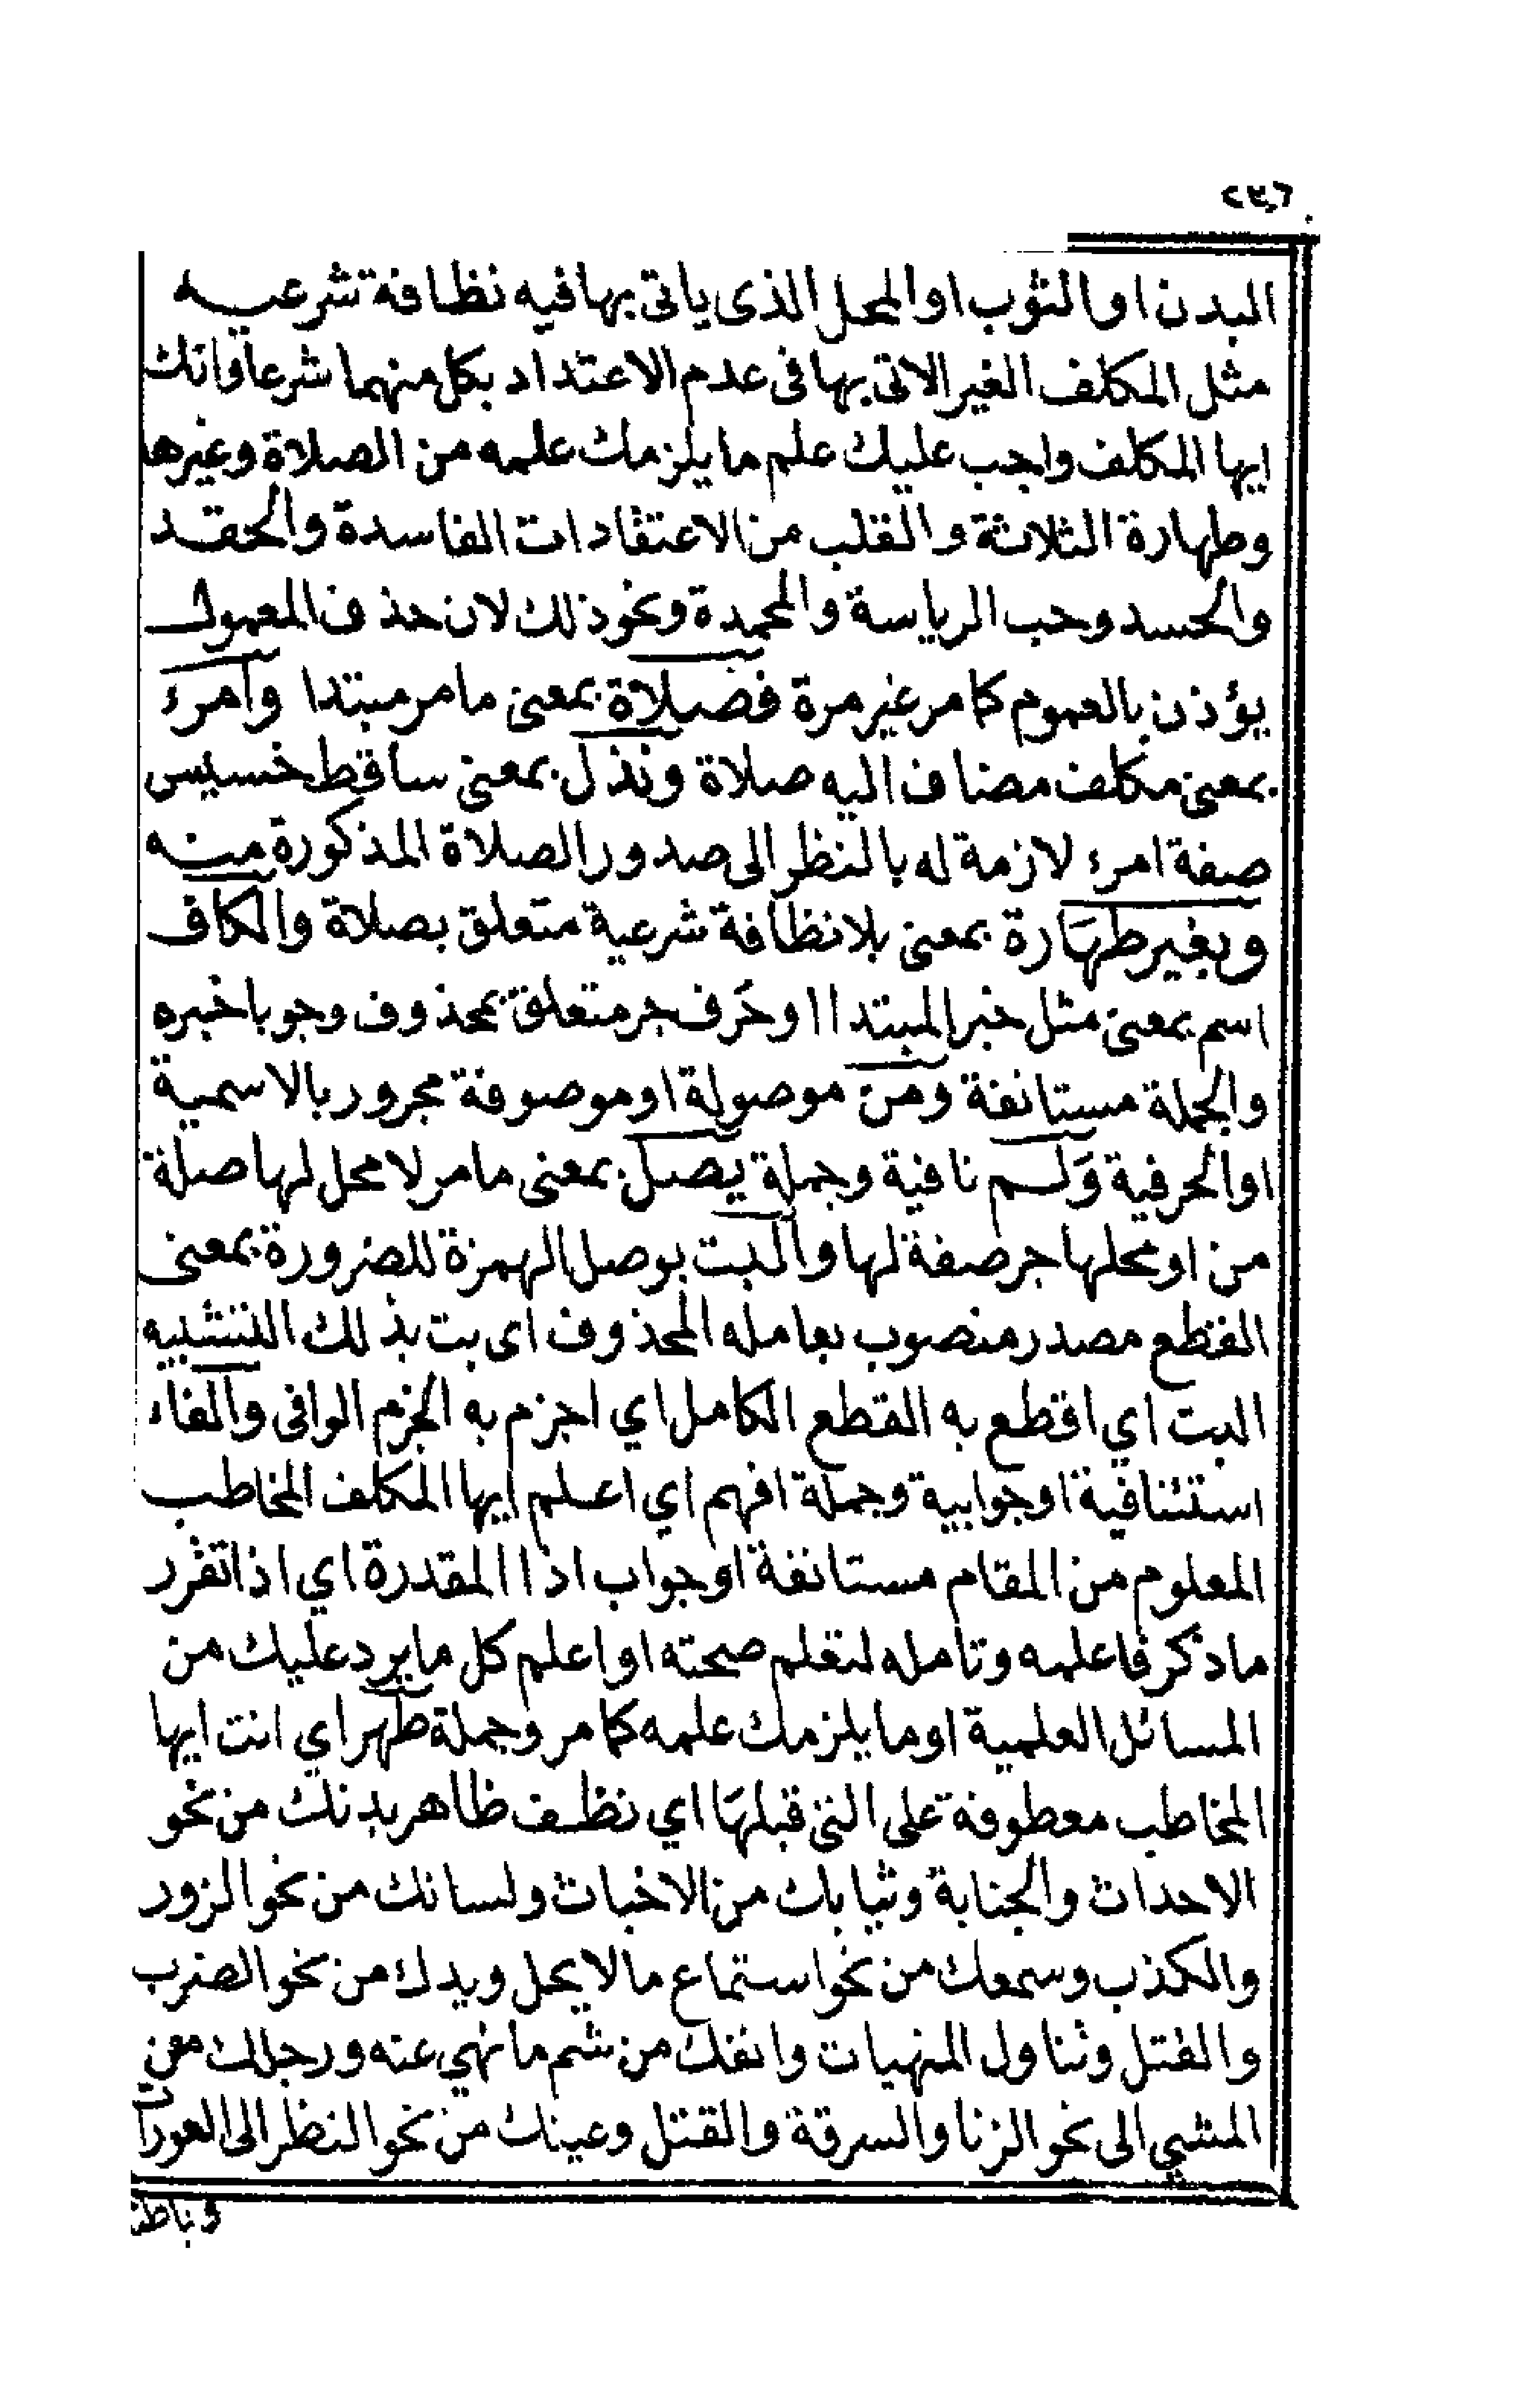 ٢٣٦
البدن او الثوب او المحل الذى ياتى بها فيه نظافة شرعيه
مثل المكلف الغير الاتى بها فى عدم الاعتداد بكل منهما شرعا وانك
ايها المكلف واجب عليك علم ما يلزمك علمه من الصلاة وغيرها
وطهارة الثلاثة والقلب من الاعتقادات الفاسدة والحقد
والحسد وحب الرياسة والمحمدة ونحو ذلك لان حذف المعمول
يؤذن بالعموم كما مر غير مرة فصلاة بمعنى ما مر مبتدا وامرء
بمعنى مكلف مضاف اليه صلاة ونذل بمعنى ساقط خسيس
صفة امرء لازمة له بالنظر الى صدور الصلاة المذكورة منه
وبغير طهارة بمعنى بلا نظافة شرعية متعلق بصلاة والكاف
اسم بمعنى مثل خبر المبتدا ا وحرف جر متعلق بمحذوف وجوبا خبره
والجملة مستانفة ومن موصولة او موصوفة مجرور بالاسمية
او الحرفية ولم نافية وجملة يصل بمعنى ما مر لا محل لها صلة
من او محلها جر صفة لها والبت بوصل الهمزة للضرورة بمعنى
القطع مصدر منصوب بعامله المحذوف اى بت بذلك التشبيه
البت اي اقطع به القطع الكامل اي اجزم به الجزم الوافى والفاء
استئنافية او جوابية وجملة افهم اي اعلم ايها المكلف المخاطب
المعلوم من المقام مستانفة او جواب اذا المقدرة اي اذا تقرر
ما ذكر فاعلمه وتامله لتعلم صحته او اعلم كل ما يرد عليك من
المسائل العلمية او ما يلزمك علمه كما مر وجملة طهر اي انت ايها
المخاطب معطوفة على التى قبلها اي نظف ظاهر بدنك من نحو
الاحداث والجنابة وثيابك من الاخباث ولسانك من نحو الزور
والكذب وسمعك من نحو استماع ما لا يحل ويدك من نحو الضرب
والقتل وتناول المنهيات وانفك من شم ما نهي عنه ورجلك من
المشي الى نحو الزنا والسرقة والقتل وعينك من نحو النظر الى العورات
وباطن